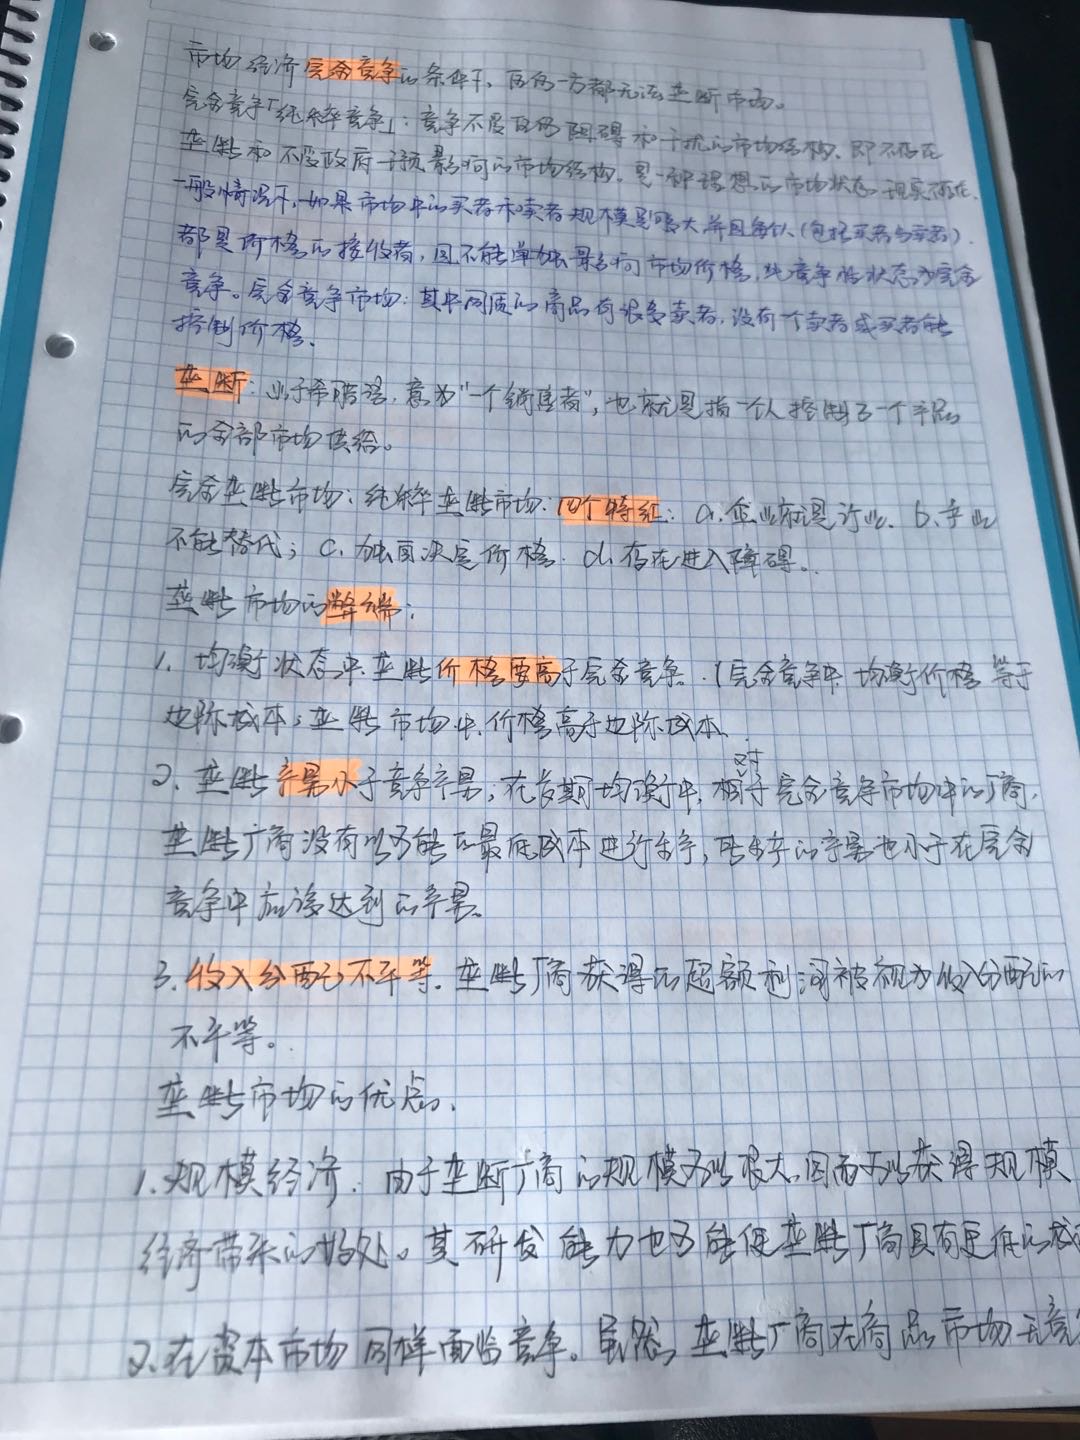 市场经济完全竞争的条件下，任何一方都无法垄断市场。
完全竞争「纯粹竞争」：竞争不受任何阻碍和干扰的市场结构，即不存在
垄断和不受政府干预影响的市场结构。是一种理想的市场状态，现实不存在.
一般情况下，如果市场中的买者和卖者规模足够大并且每个人（包括买者与卖者）.
都是价格的接收者，且不能单独影响市场价格，此竞争性状态为完全
竞争。完全竞争市场：其中同质的商品有很多卖者，没有一个卖者或买者能
控制价格.
垄断：出于希腊语，意为“一个销售者”，也就是指一个人控制了一个产品
的全部市场供给。
完全垄断市场：纯粹垄断市场：四个特征： a. 企业就是行业. b. 产业
不能替代； c. 独自决定价格. d. 存在进入障碍。
垄断市场的弊端：
1. 均衡状态中垄断价格要高于完全竞争.（完全竞争中均衡价格等于
边际成本；垄断市场中，价格高于边际成本.
2. 垄断产量小于竞争产量；在长期均衡中，相对于完全竞争市场中的厂商，
垄断厂商没有以可能的最低成本进行生产，所生产的产量也小于在完全
竞争中应该达到的产量。
3. 收入分配不平等. 垄断厂商获得的超额利润被视为收入分配的
不平等。
垄断市场的优点.
1. 规模经济. 由于垄断厂商的规模可以很大，因而可以获得规模
经济带来的好处。其研发能力也可能使垄断厂商具有更低的成
2. 在资本市场同样面临竞争。虽然，垄断厂商在商品市场无竞